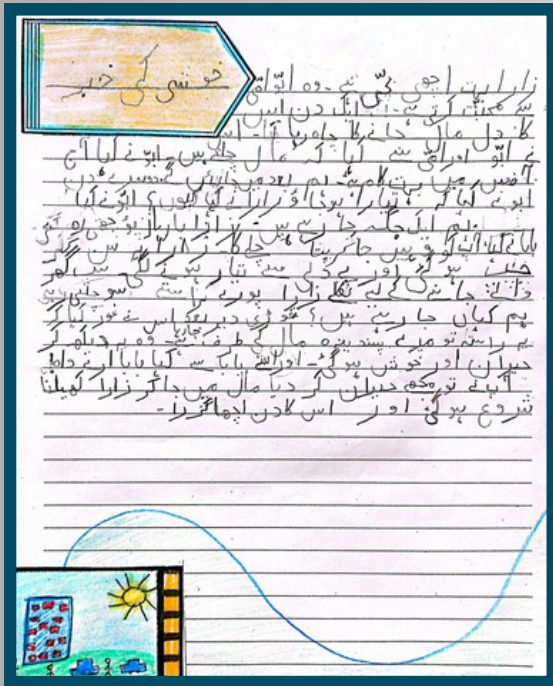 خوشی کی خبر
زارا بہت اچھی بچی ہے۔ وہ ابو امی
سے محبت کرتی ہے۔ ایک دن اس
کا دل مال جانے کا چاہ رہا تھا۔ اس
نے ابو اور امی سے کہا کہ مال چلتے ہیں۔ ابو نے کہا آج
آفس میں بہت کام ہے۔ ہم بعد میں جائیں گے دوسرے دن
ابو نے کہا کہ تیار ہو جاؤ زارا نے کہا کیوں؟ ابو نے کہا
ہم ایک جگہ جا رہے ہیں۔ زارا بار بار پوچھ رہی تھی
بابا نے کہا آپ کو وہیں جا کر پتا چلے گا زارا یہ سن کر
ہو گئی اور بے دلی سے تیار ہونے لگی سب گھر
والے جانے کے لیے نکلے زارا پورے راستے سوچتی رہی
ہم کہاں جا رہے ہیں؟ تھوڑی دیر بعد اس نے غور کیا کہ
یہ راستہ تو میرے پسندیدہ مال کی طرف جاتا ہے۔ وہ یہ دیکھ کر
حیران اور خوش ہو گئی۔ اور اسنے بابا سے کہا بابا ارے واہ!
آپ نے تو مجھے حیران کر دیا مال میں جا کر زارا کھیلنا
شروع ہو گئی اور اس کا دن اچھا گزرا۔